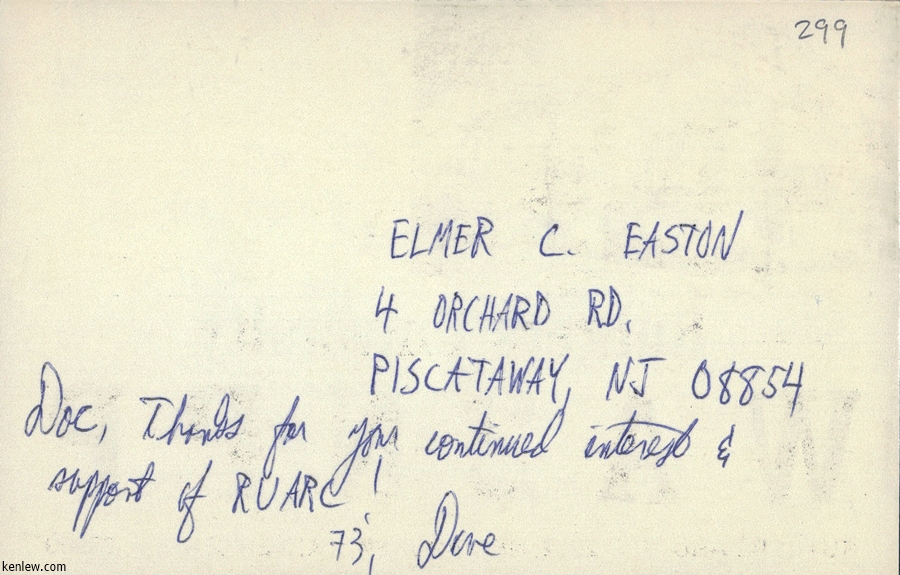 299
ELMER C. EASTON
4 ORCHARD RD.
PISCATAWAY, NJ 08854
Doc, Thanks for your continued interest &
support of RUARC!
73, Dave
kenlew.com